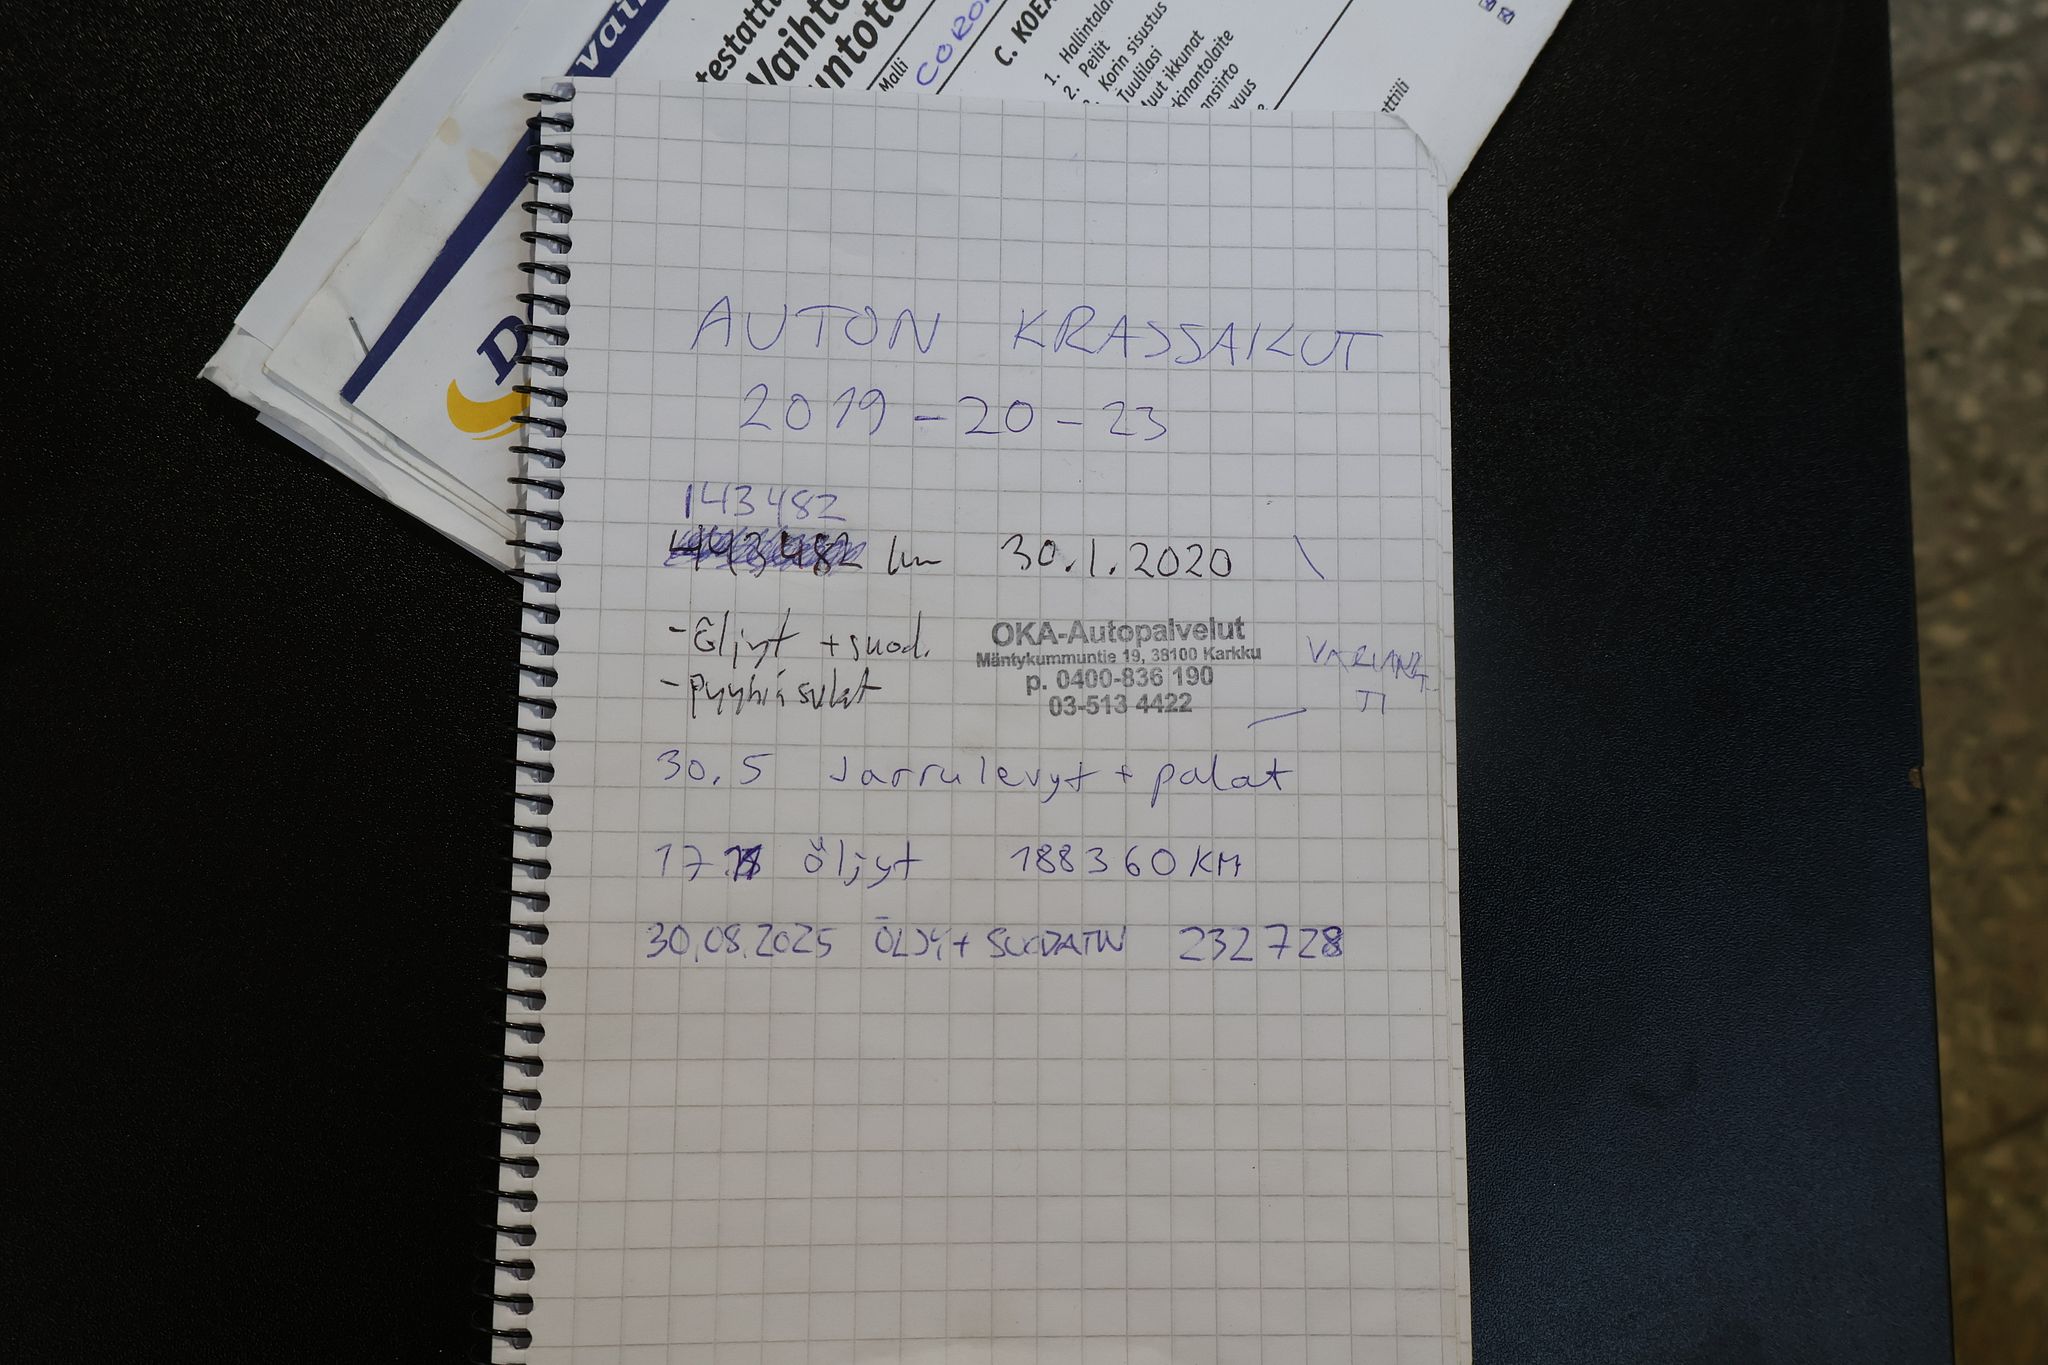 vai
testattu
Vaihto
untote
Malli
COROL
C. KOEA
1. Hallintala
2. Peilit
Korin sisustus
Tuulilasi
uut ikkunat
kinantolaite
nsiirto
vuus
ttiili
D
AUTON KRASSAKUT
2019-20-23
143482
443482 km 30.1.2020
-Öljyt + suod.
-Pyyhiäsulat
OKA-Autopalvelut
Mäntykummuntie 19, 38100 Karkku
p. 0400-836 190
03-513 4422
VARIANT
TI
30.5 Jarrulevyt + palat
17 öljyt 188360 KM
30.08.2025 ÖLJY+ SUODATIN 232728